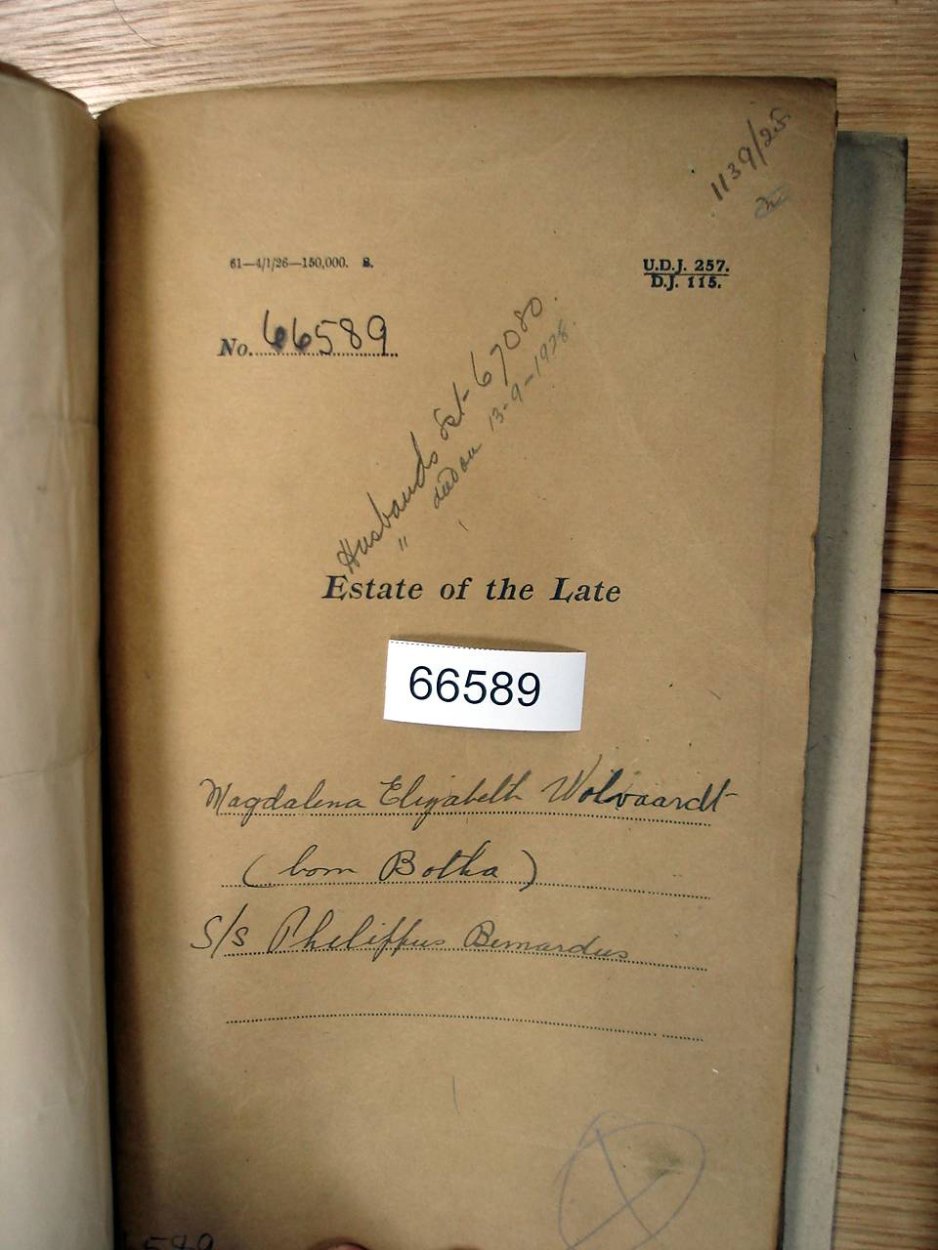 1139/25.
61—4/1/26—150,000. S.
U.D.J. 257.
D.J. 115.
No. 66589
Husbands Est- 67080.
" died on 13-9-1928.
Estate of the Late
66589
Magdalena Elizabeth Wolvaardt
(born Botha)
S/s Philippus Bernardus